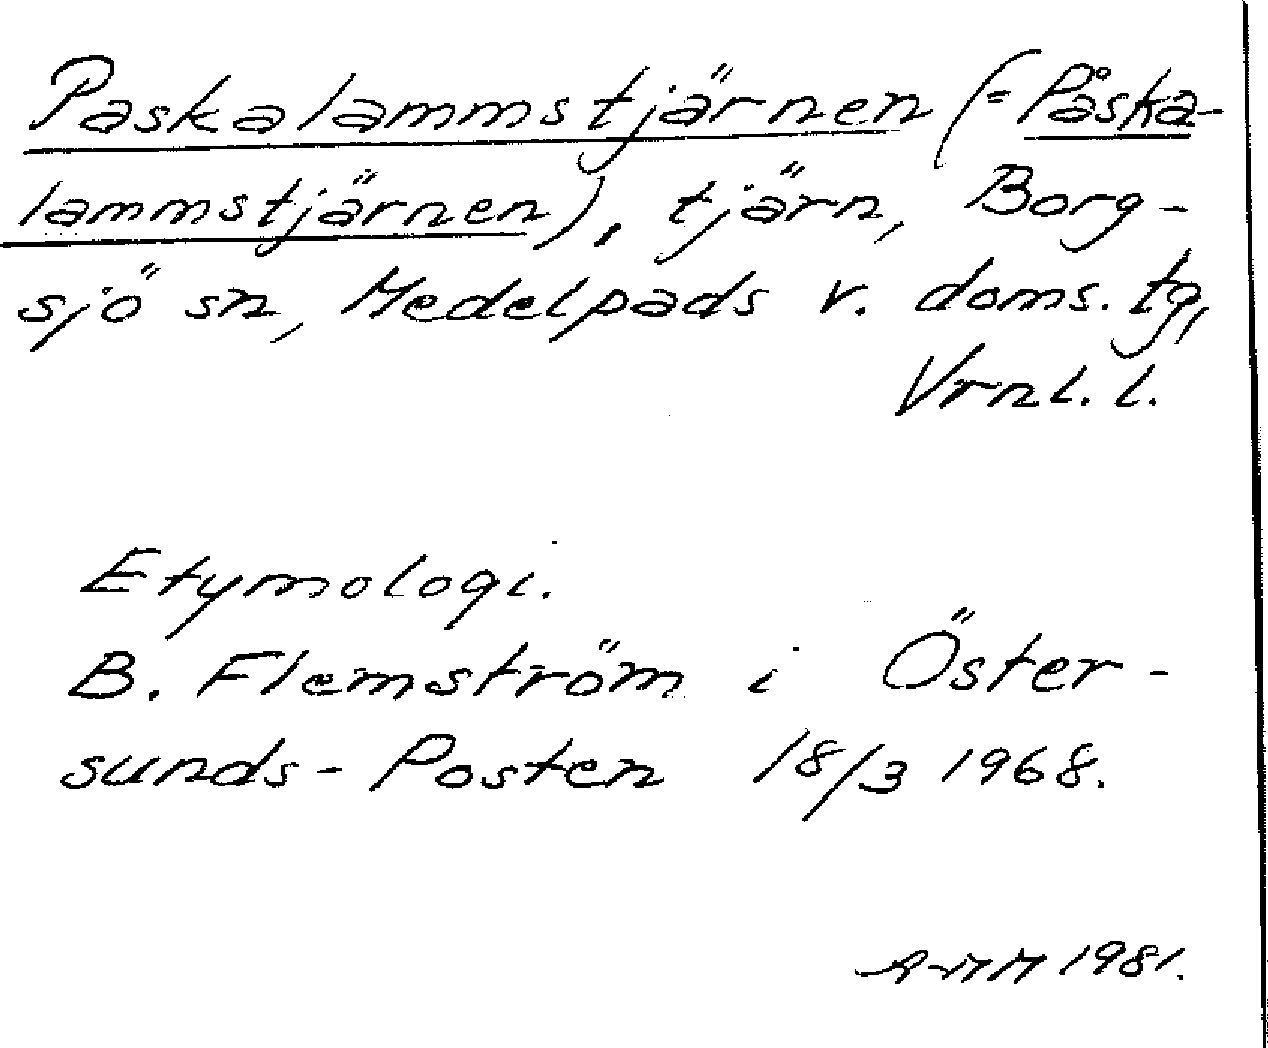 Paskalammstjärnen (= Påska-
lammstjärnen), tjärn, Borg-
sjö sn, Medelpads v. doms. tg,
Vrnl. l.
Etymologi.
B. Flemström i Öster-
sunds-Posten 18/3 1968.
A-MM 1981.